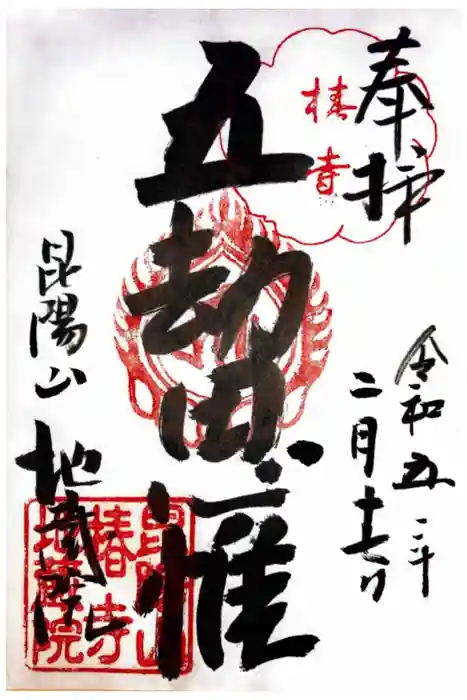 奉拝
椿寺
令和五年
二月十七日
五劫思惟
昆陽山
地蔵院
昆陽山
椿寺
地蔵院